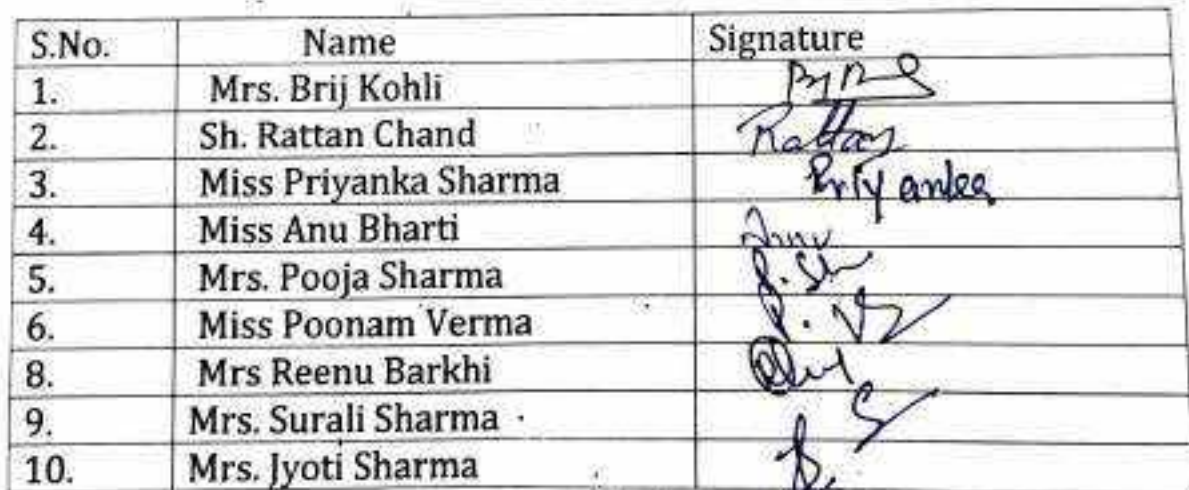 S.No. Name Signature
1. Mrs. Brij Kohli
2. Sh. Rattan Chand Rattan
3. Miss Priyanka Sharma Priyanka
4. Miss Anu Bharti Anu
5. Mrs. Pooja Sharma P. Sh
6. Miss Poonam Verma
8. Mrs Reenu Barkhi
9. Mrs. Surali Sharma
10. Mrs. Jyoti Sharma